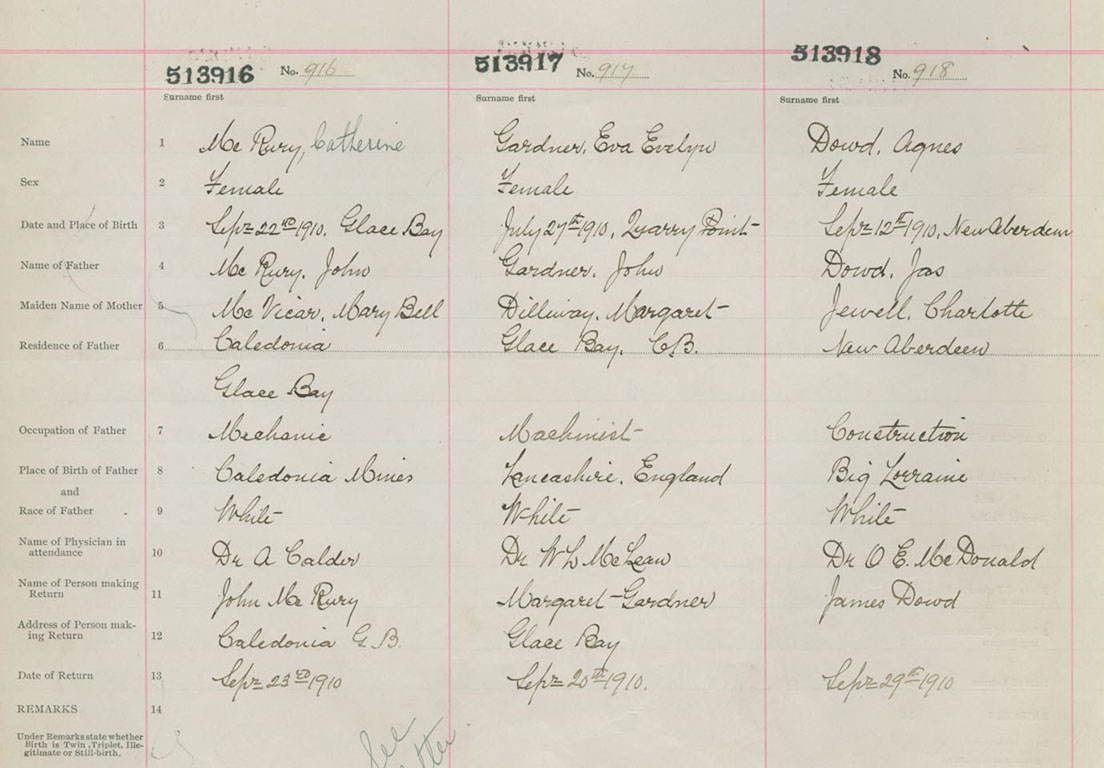 513916 No. 916 513917 No. 917 513918 No. 918
Surname first Surname first Surname first
Name 1 Mc Rury, Catherine Gardner, Eva Evelyn Dowd, Agnes
Sex 2 Female Female Female
Date and Place of Birth 3 Sept 22nd 1910, Glace Bay July 27th 1910, Quarry Point Sept 12th 1910, New Aberdeen
Name of Father 4 Mc Rury, John Gardner, John Dowd, Jas
Maiden Name of Mother 5 Mc Vicar, Mary Bell Dilliway, Margaret Jewell, Charlotte
Residence of Father 6 Caledonia Glace Bay, C.B. New Aberdeen
Glace Bay
Occupation of Father 7 Mechanic Machinist Construction
Place of Birth of Father 8 Caledonia Mines Lancashire, England Big Lorraine
and
Race of Father 9 White White White
Name of Physician in
attendance 10 Dr A Calder Dr W L McLean Dr O E. McDonald
Name of Person making
Return 11 John Mc Rury Margaret Gardner James Dowd
Address of Person mak-
ing Return 12 Caledonia G.B. Glace Bay
Date of Return 13 Sept 23rd 1910 Sept 20th 1910. Sept 29th 1910
REMARKS 14
Under Remarks state whether
Birth is Twin, Triplet, Ille-
gitimate or Still-birth.
See